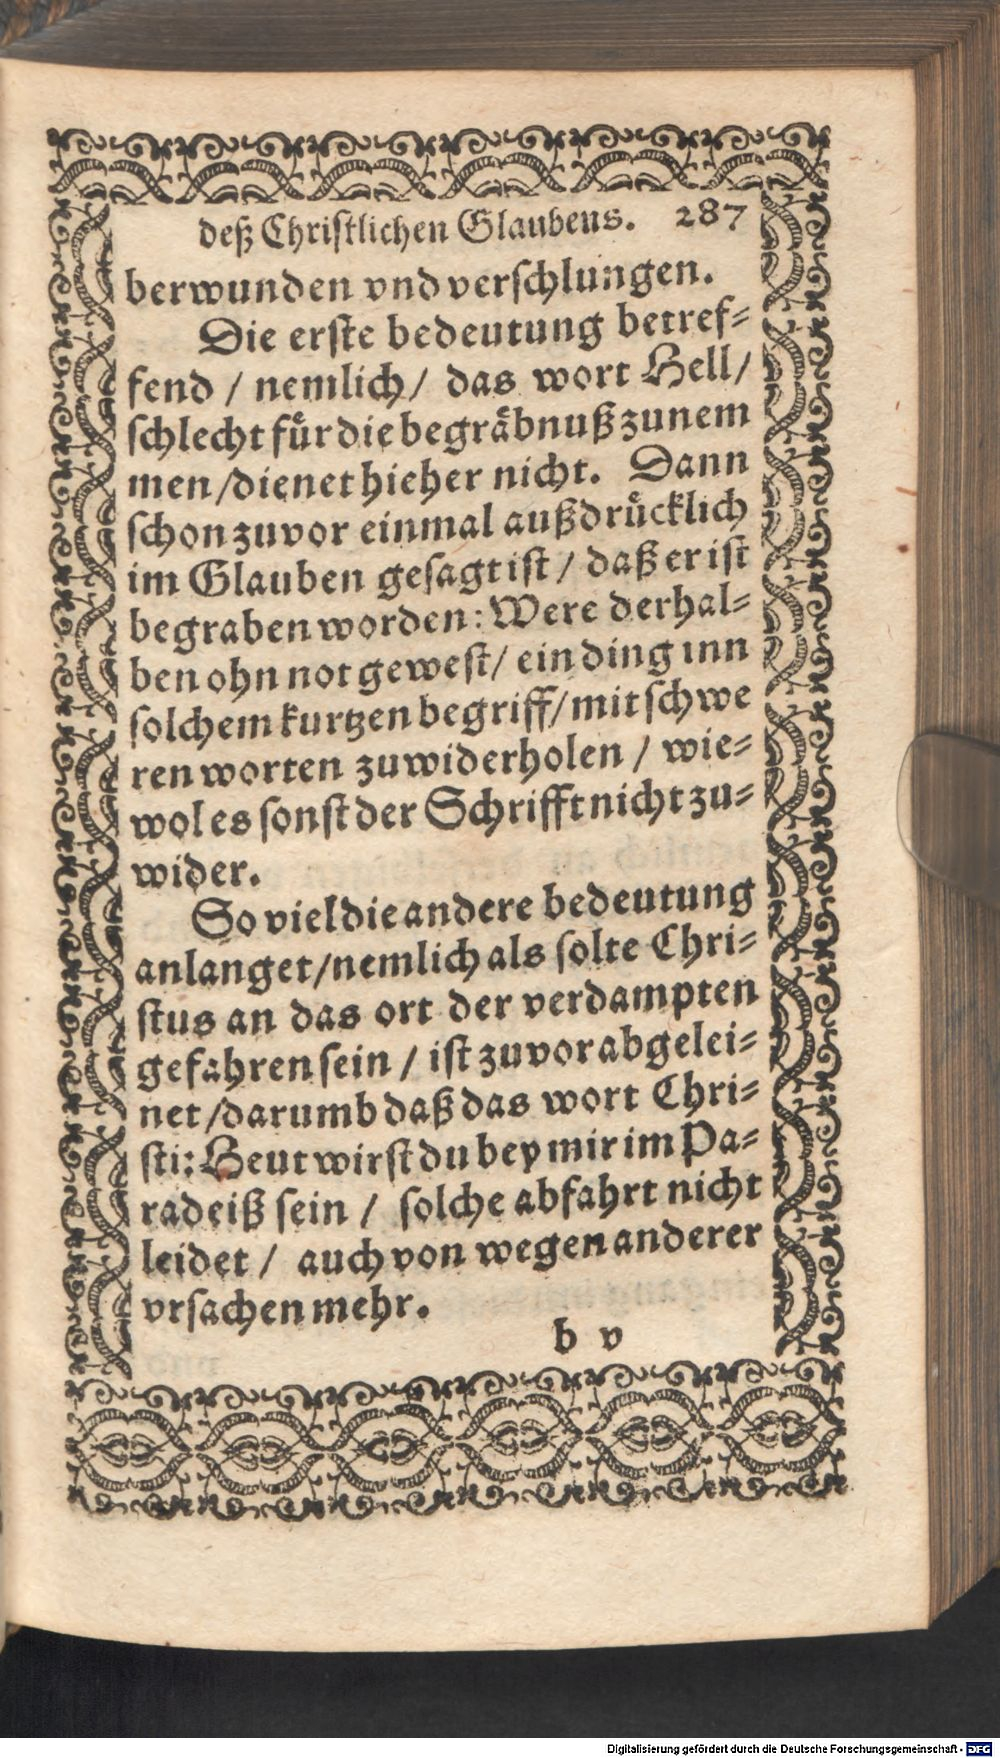 deß Chriſtlichen Glaubens. 287
berwunden vnd verſchlungen.
Die erſte bedeutung betref⸗
fend / nemlich / das wort Hell /
ſchlecht fuͤr die begraͤbnuß zunem
men / dienet hieher nicht. Dann
ſchon zuvor einmal außdruͤcklich
im Glauben geſagt iſt / daß er iſt
begraben worden: Were derhal⸗
ben ohn not geweſt / ein ding inn
ſolchem kurtzen begriff / mit ſchwe
ren worten zuwiderholen / wie⸗
wol es ſonſt der Schrifft nicht zu⸗
wider.
So viel die andere bedeutung
anlanget / nemlich als ſolte Chri⸗
ſtus an das ort der verdampten
gefahren ſein / iſt zuvor abgelei⸗
net / darumb daß das wort Chri⸗
ſti: Heut wirſt du bey mir im Pa⸗
radeiß ſein / ſolche abfahrt nicht
leidet / auch von wegen anderer
vrſachen mehr.
b v
Digitalisierung gefördert durch die Deutsche Forschungsgemeinschaft - DFG